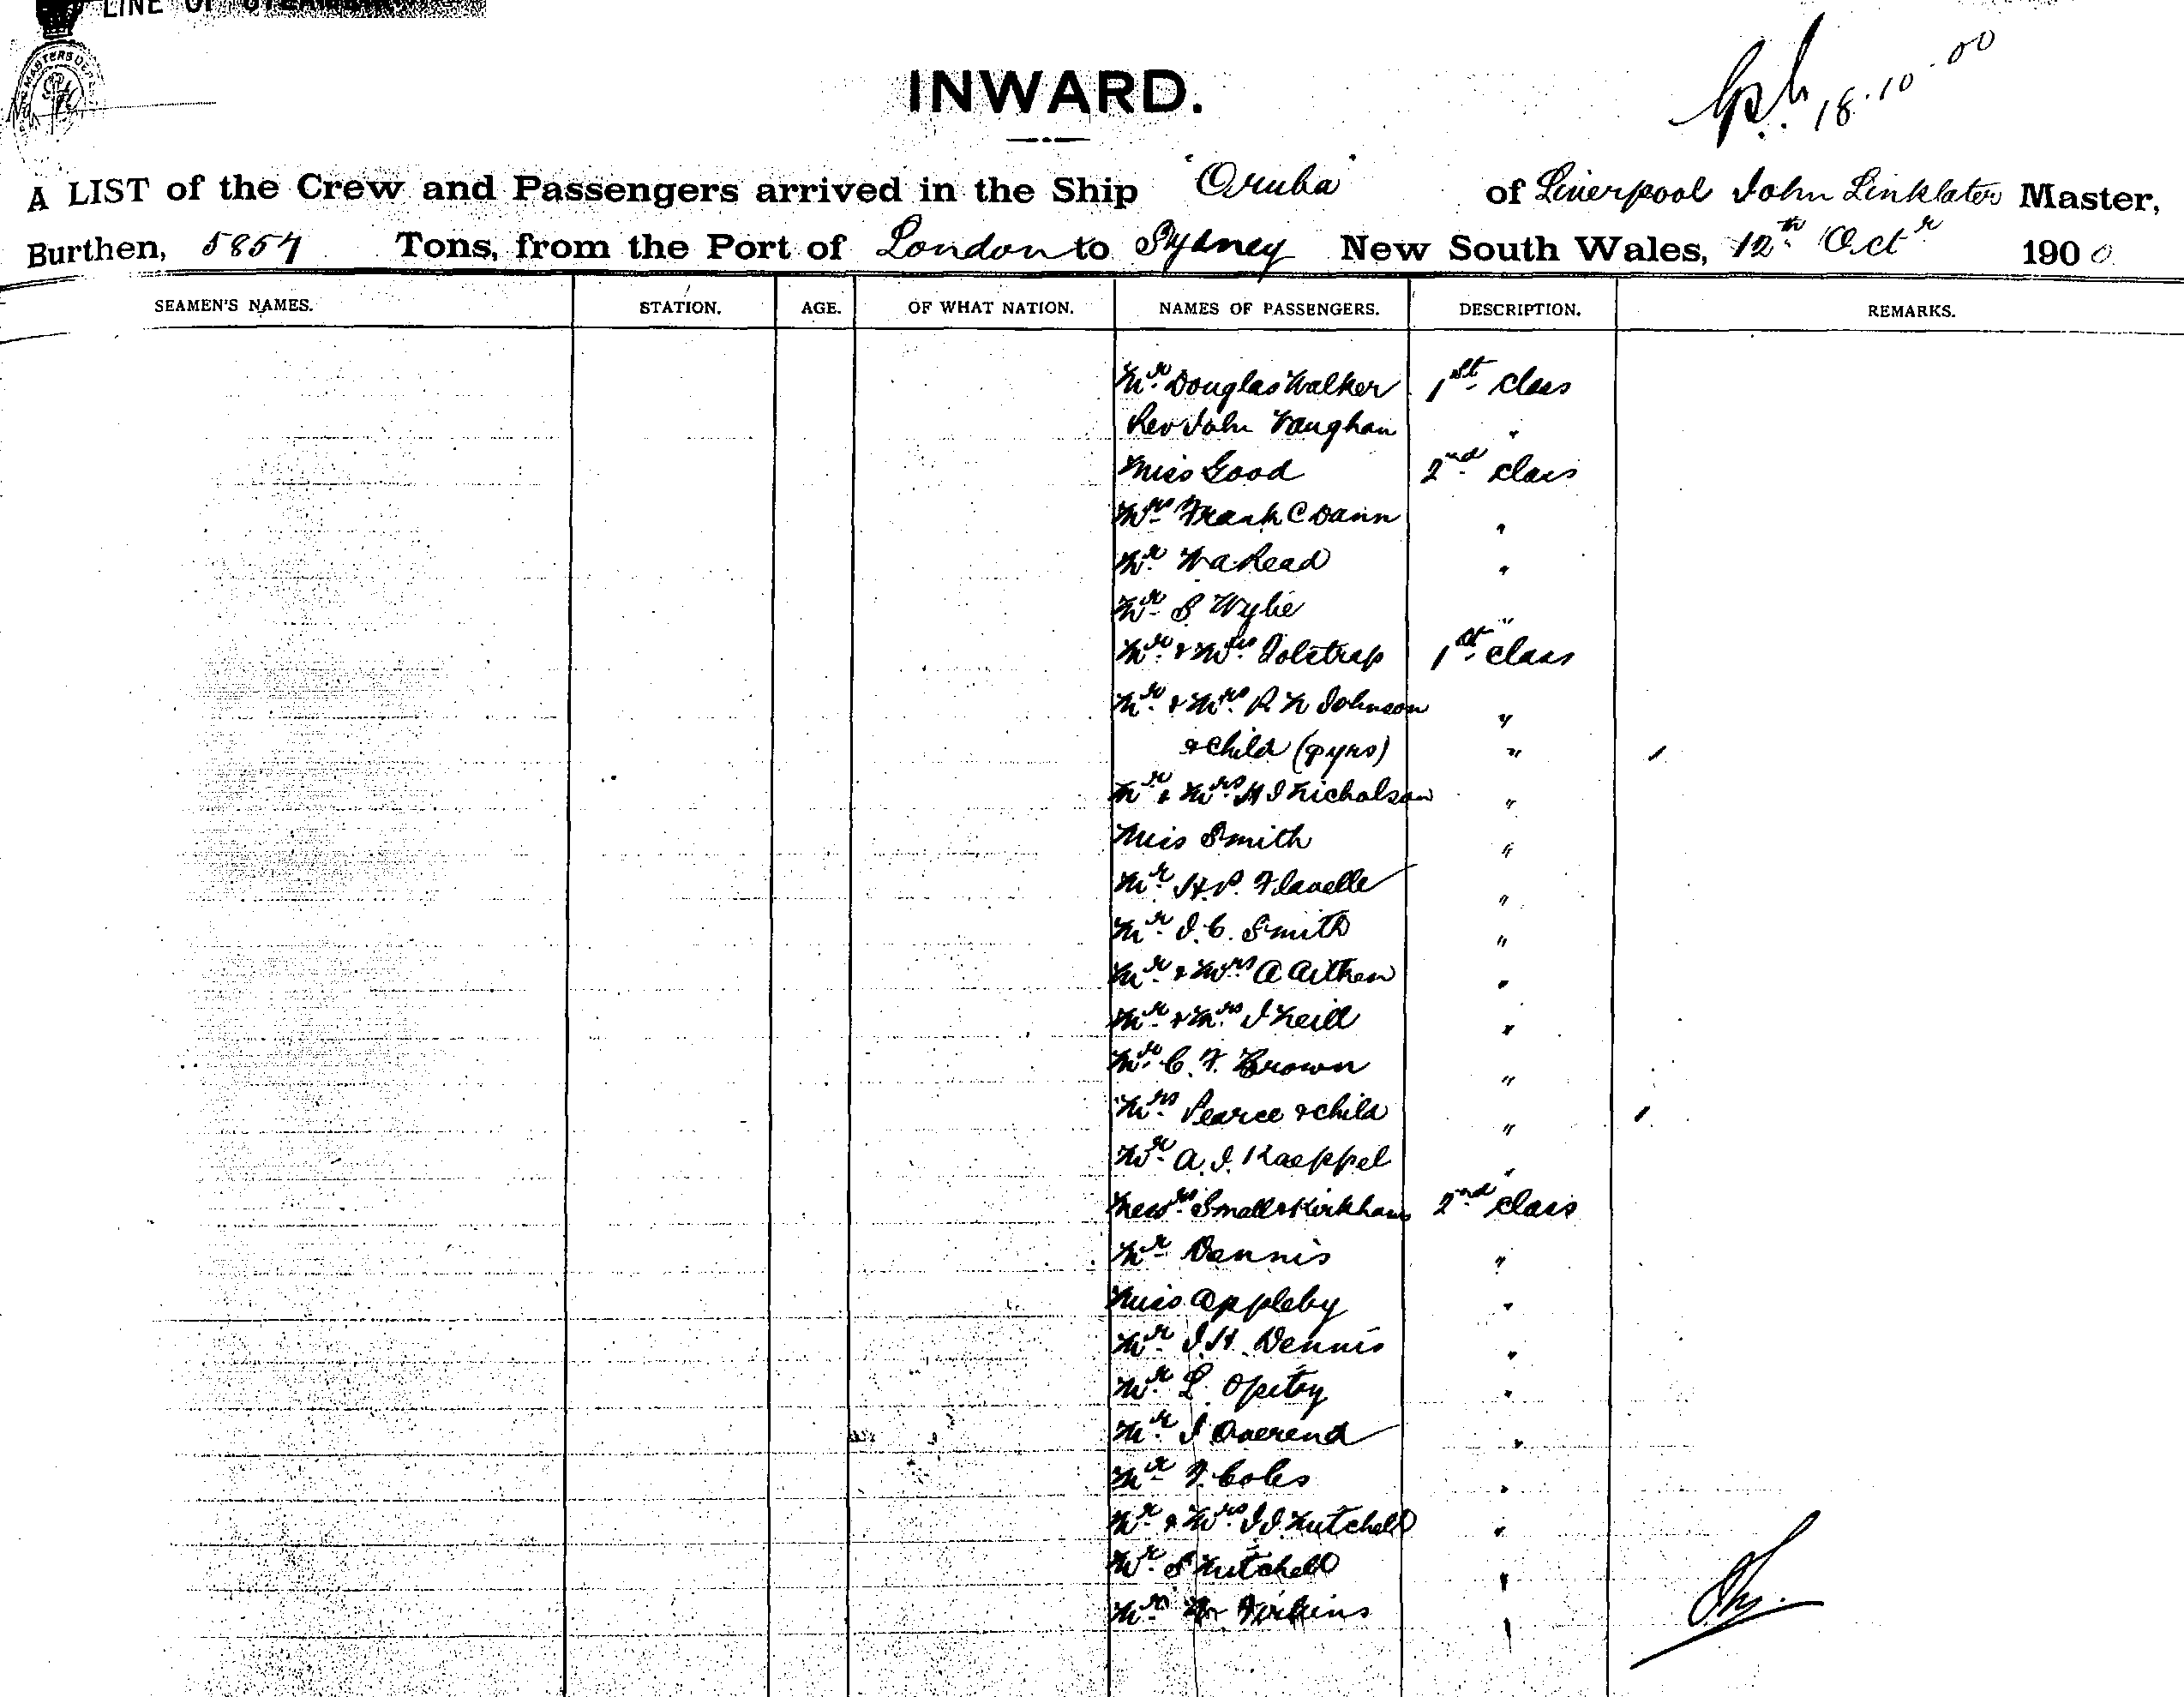 LINE OF
INWARD.
18.10.00
A LIST of the Crew and Passengers arrived in the Ship "Oruba" of Liverpool John Linklater Master,
Burthen, 5857 Tons, from the Port of London to Sydney New South Wales, 12th Octr 1900
SEAMEN'S NAMES. STATION. AGE. OF WHAT NATION. NAMES OF PASSENGERS. DESCRIPTION. REMARKS.
Mr Douglas Walker 1st class
Rev John Vaughan "
Miss Good 2nd class
Mrs Frank C Dann "
Mr W A Read "
Mr S Wylie "
Mr & Mrs 1st class
Mr & Mrs R N Johnson "
& child yrs) "
Mr & Mrs H J Nicholson "
Miss Smith "
Mr H.P. Flavelle "
Mr J.C. Smith "
Mr & Mrs A Aitken "
Mr & Mrs J Neill "
Mr C.F. Brown "
Mrs Pearce & child "
Mr A.J. Kaeppel "
Small & Kirkham 2nd class
Mr Dennis "
Miss Appleby "
Mr J.H. Dennis "
Mr L. "
Mr J Overend "
Mr F. Coles "
Mr & Mrs J J Mutchell "
Mr S Mutchell "
Mr "